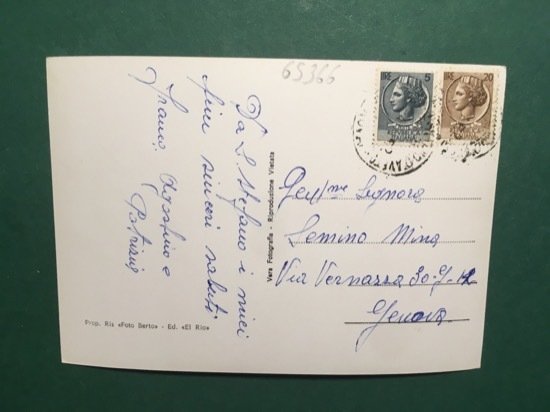 65366
Da S. Stefano i miei
più sinceri saluti
Franco Agostino e
Patrizia
Vera Fotografia - Riproduzione Vietata
Prop. Ris «Foto Berto» - Ed. «El Rio»
LIRE 5
LIRE 20
Gen/me Signora
Semino Mina
Via Vernazza 30-9-12
Genova